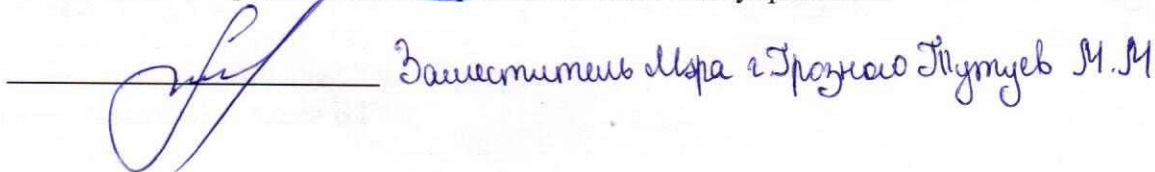 Заместитель Мэра г Грозного Тутуев М.М